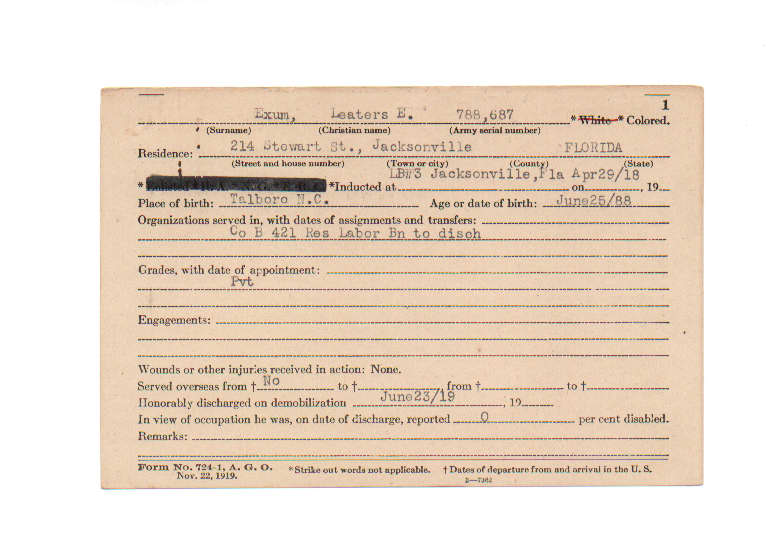 1
Exum, Leaters E. 788,687 *White *Colored.
(Surname) (Christian name) (Army serial number)
Residence: 214 Stewart St., Jacksonville FLORIDA
(Street and house number) (Town or city) (County) (State)
LB#3 Jacksonville,Fla Apr29/18
* *Inducted at on , 19
Place of birth: Talboro N.C. Age or date of birth: June25/88
Organizations served in, with dates of assignments and transfers:
Co B 421 Res Labor Bn to disch
Grades, with date of appointment:
Pvt
Engagements:
Wounds or other injuries received in action: None.
Served overseas from † No to † , from † to †
Honorably discharged on demobilization June23/19 , 19
In view of occupation he was, on date of discharge, reported 0 per cent disabled.
Remarks:
Form No. 724-1, A. G. O. *Strike out words not applicable. † Dates of departure from and arrival in the U. S.
Nov. 22, 1919.